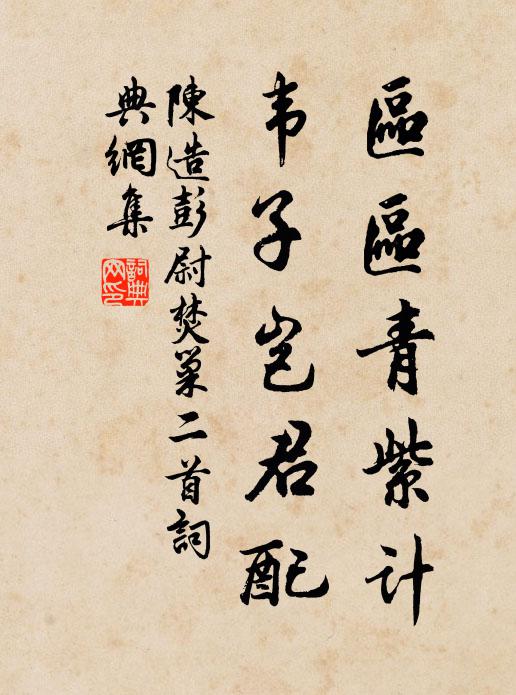 區區青紫计
韦子岂君配
陳造彭尉焚巢二首詞
典網集
詞典
网印